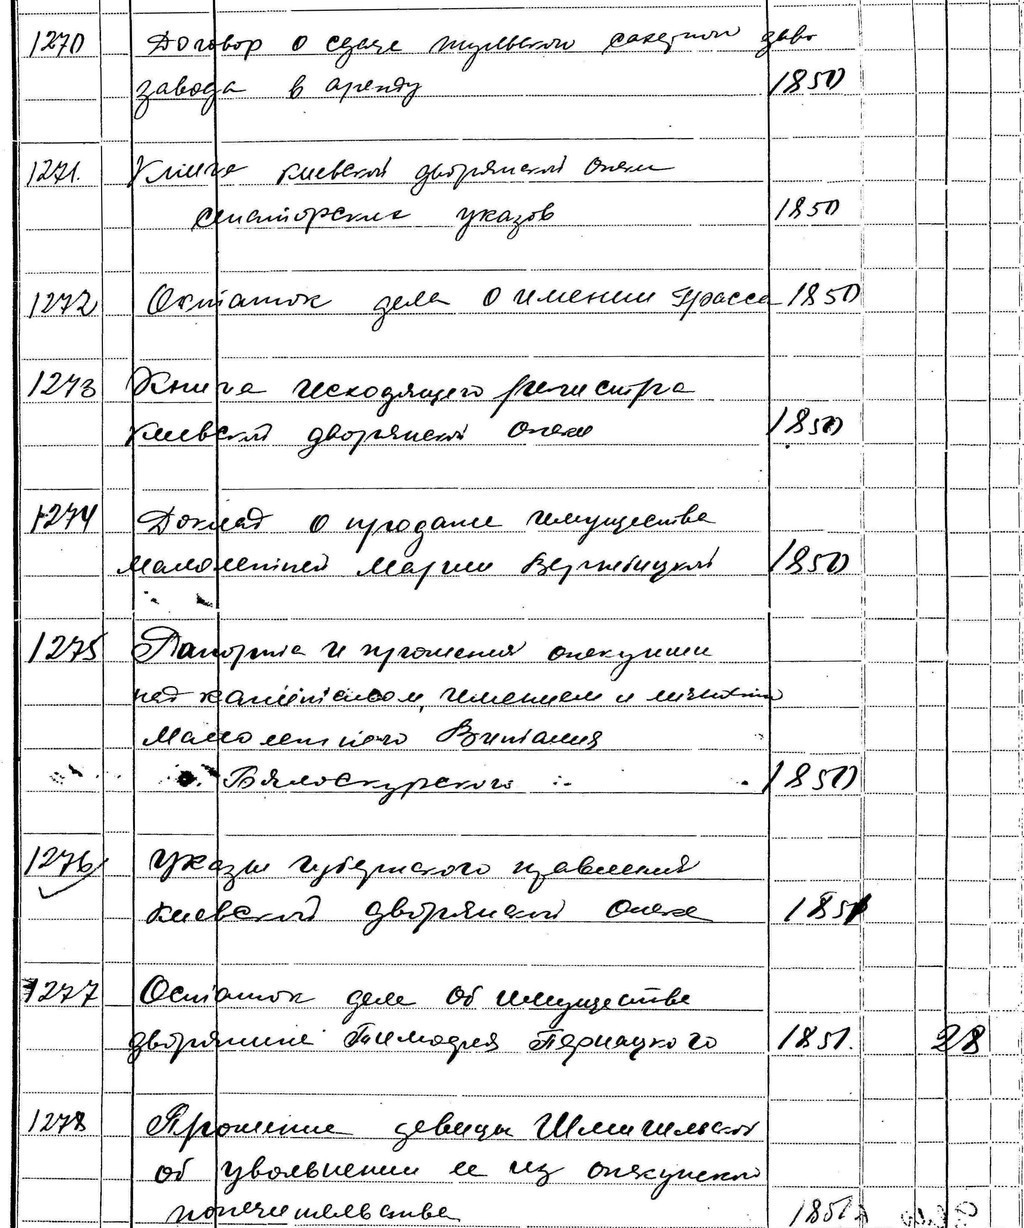 1270 Договор о сдаче тульского сахарного
завода в аренду 1850
1271. Книга киевской дворянской опеки
сенаторских указов 1850
1272 Остаток дела о имении Трасса 1850
1273 Книга исходящего регистра
киевской дворянской опеки 1850
1274 Доклад о продаже имущества
малолетней Марии Вержбицкой 1850
1275 Рапорта и прошения опекунши
над капиталом, имением и
малолетнего Виталия
Бялоскурского 1850
1276 Указы губернского правления
киевской дворянской опеке 1851
1277 Остаток дела об имуществе
дворянина Тимофея 1851. 28
1278 Прошение девицы Шмигельской
об увольнении ее из опекунского
попечительства 1851